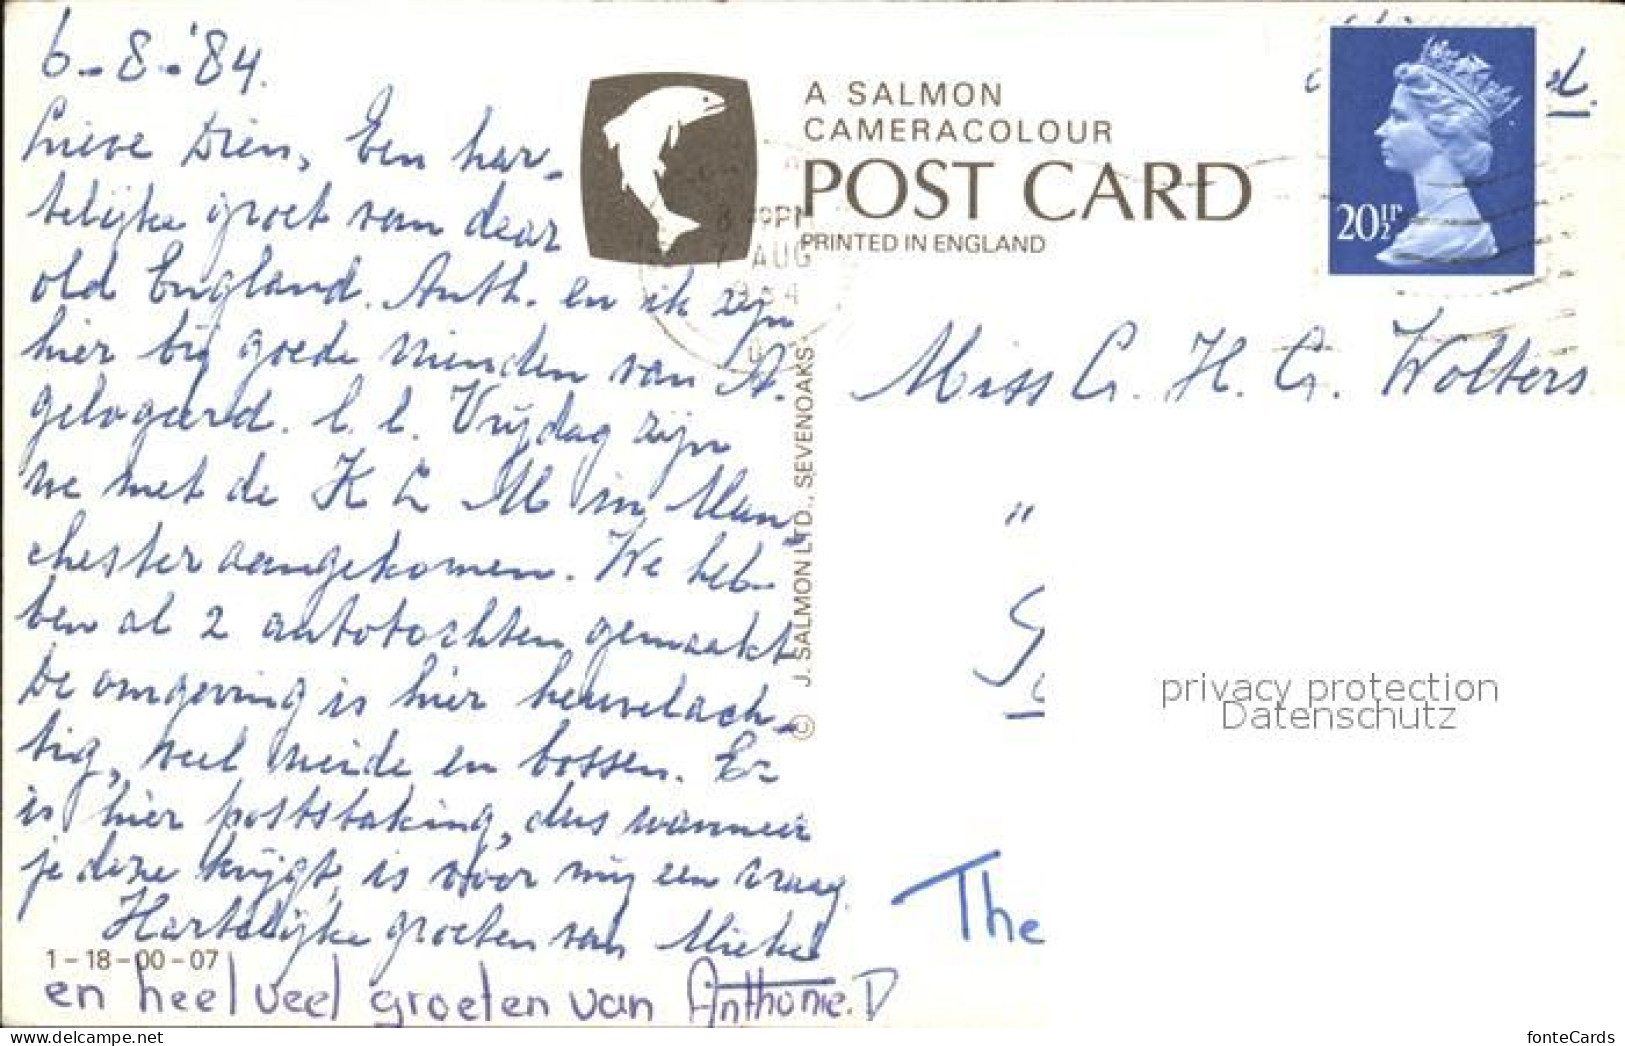 6-8-'84.
Lieve Dien, Een har-
telijke groet van dear
old England. Anth. en ik zijn
hier bij goede vrienden van A.
gelogeerd. l.l. Vrijdag zijn
we met de K L M in Man-
chester aangekomen. We heb-
ben al 2 autotochten gemaakt
De omgeving is hier heuvelach-
tig, veel weide en bossen. Er
is hier poststaking, dus wanneer
je deze krijgt, is voor mij een vraag.
Hartelijke groeten van Mieke
en heel veel groeten van Anthonie. D
1-18-00-07
A SALMON
CAMERACOLOUR
POST CARD
PRINTED IN ENGLAND
© J. SALMON LTD., SEVENOAKS
PM
7 AUG
20½P
Miss G. H. G. Wolters
"
The
privacy protection
Datenschutz
fonteCards